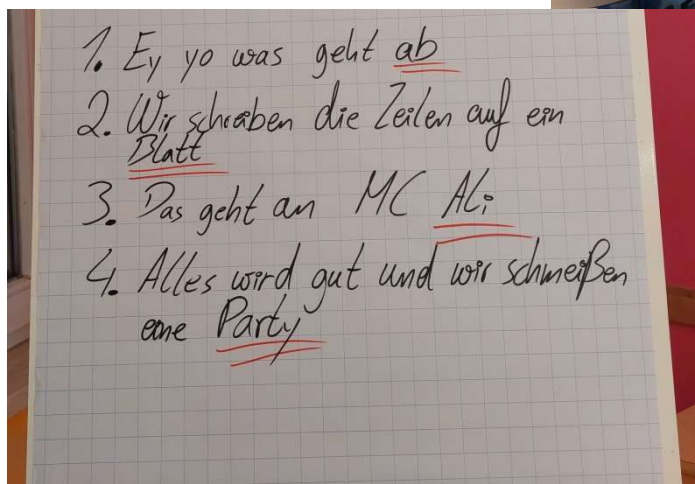 1. Ey yo was geht ab
2. Wir schreiben die Zeilen auf ein
Blatt
3. Das geht an MC Ali
4. Alles wird gut und wir schmeißen
eine Party